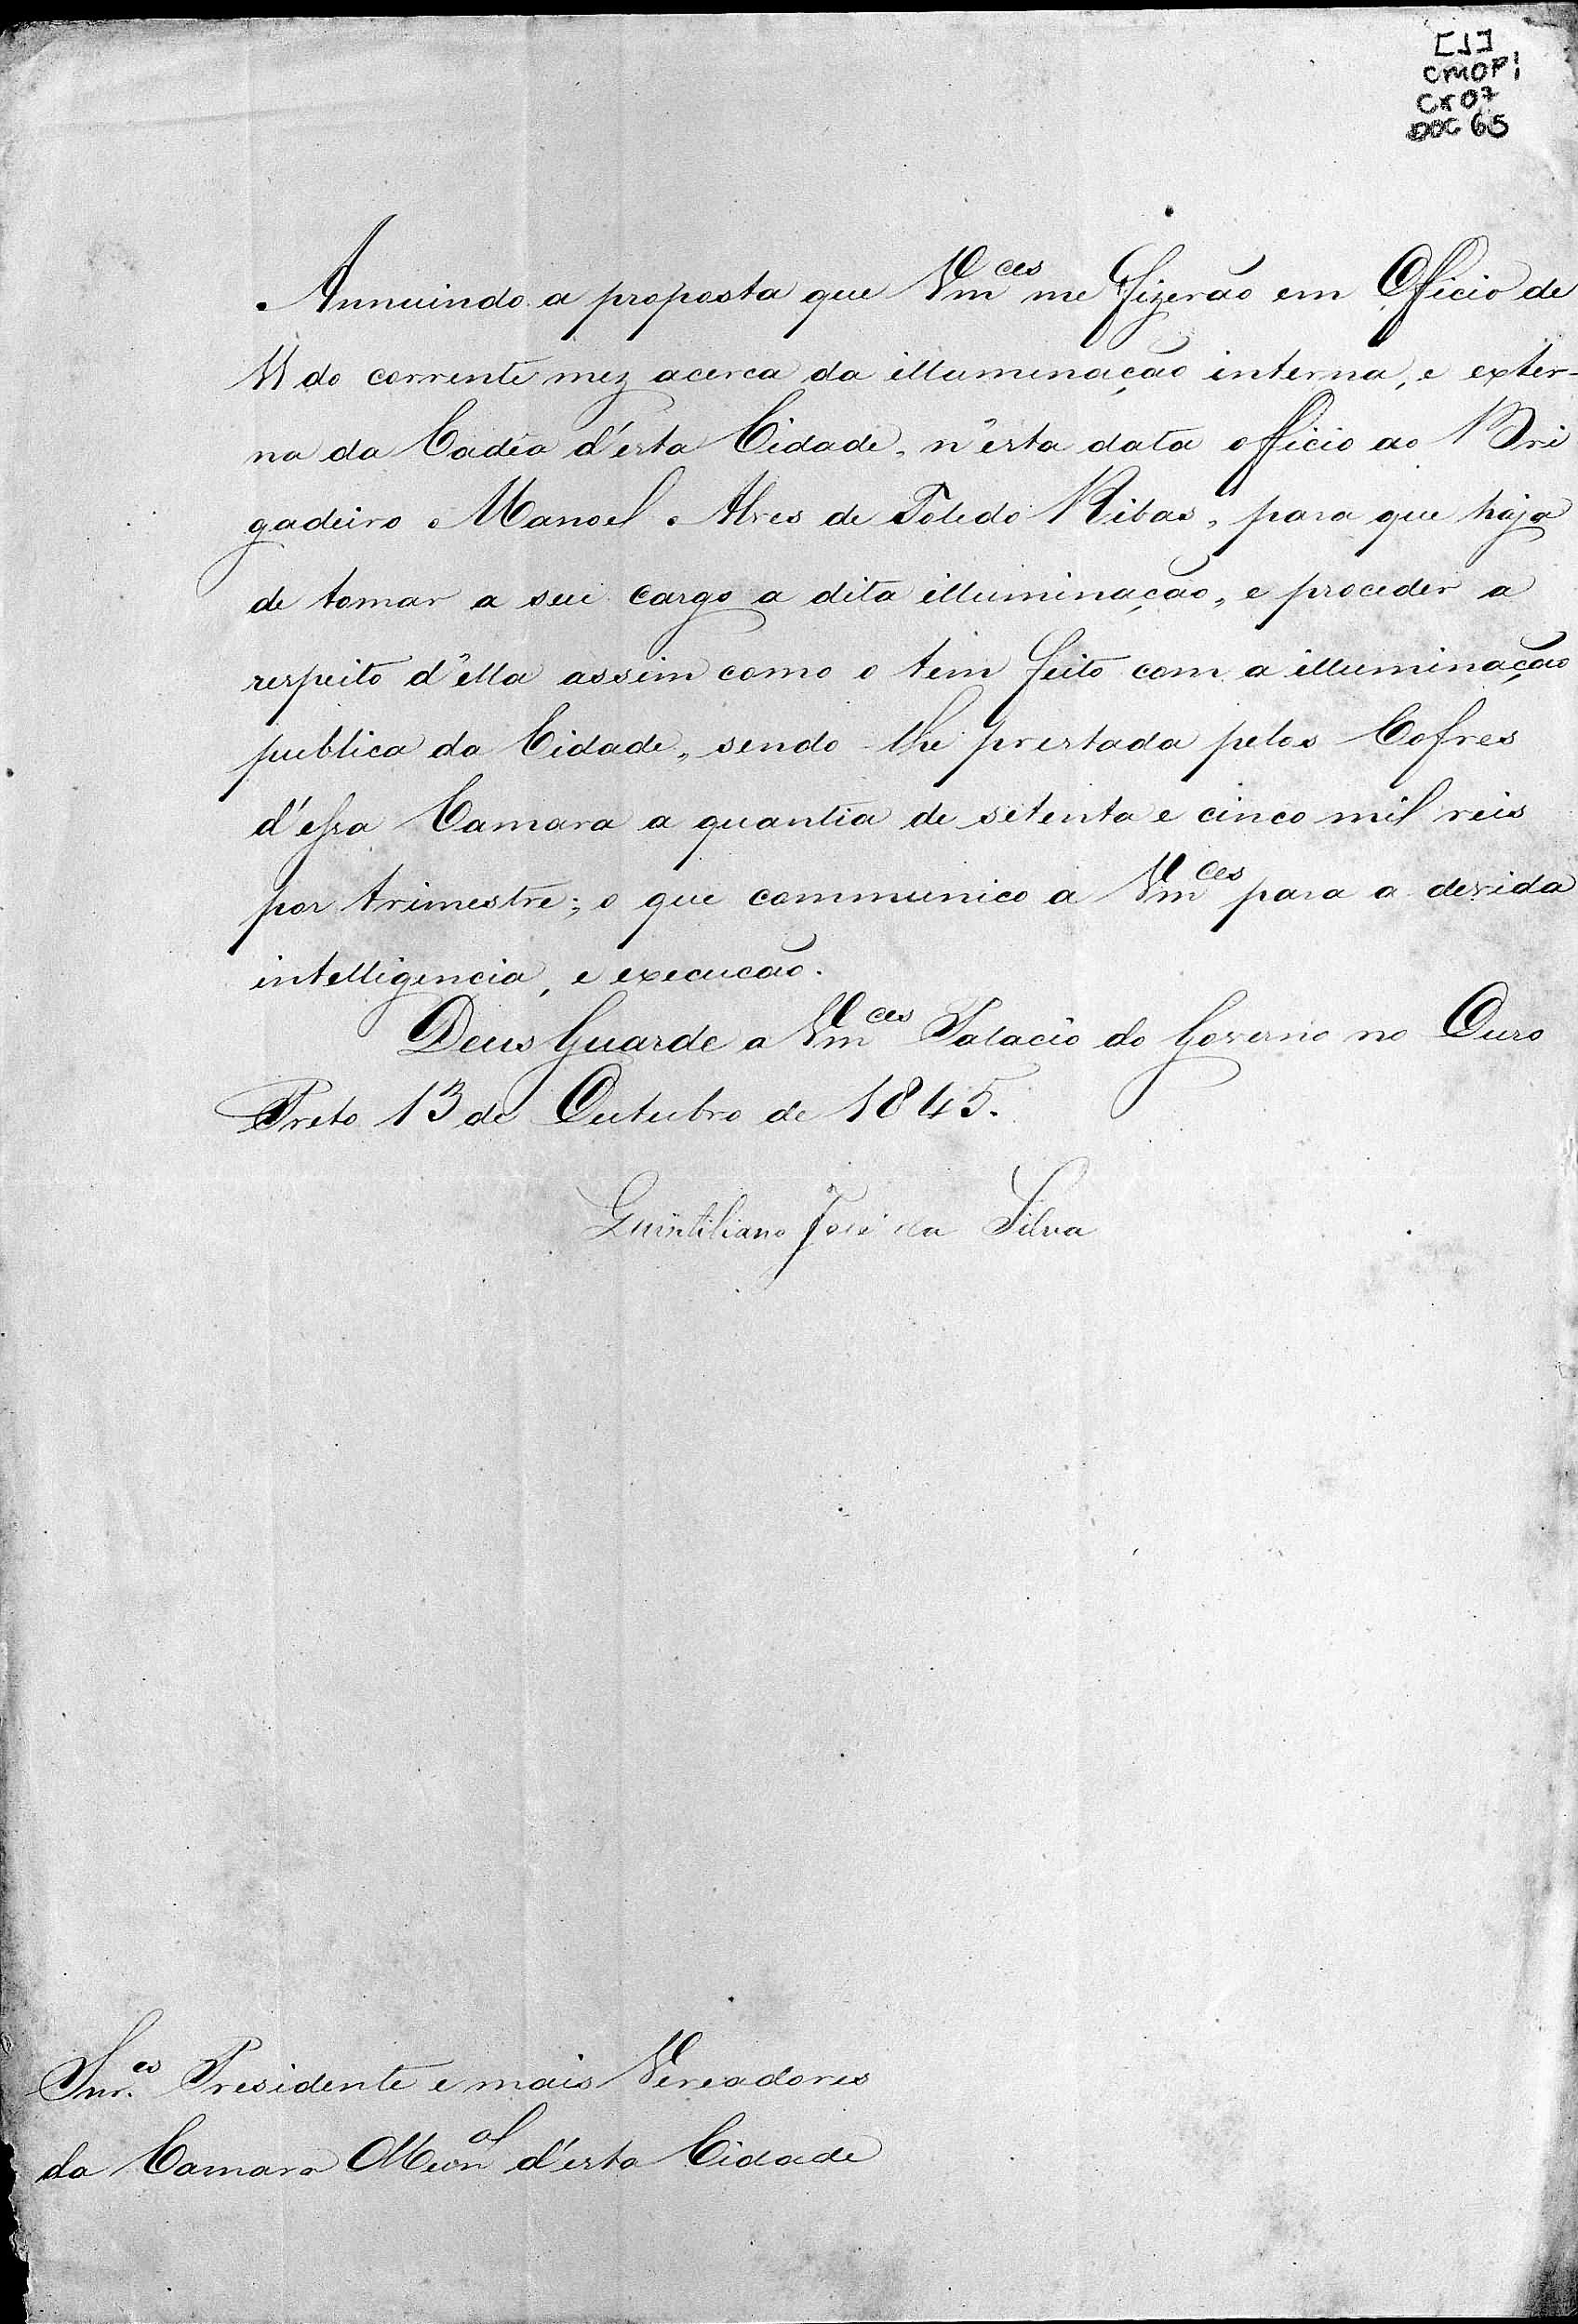 [J]
CMOP:
CX 07
DOC 65
Annuindo a proposta que Vm^ces me fizerão em Officio de
11 do corrente mez acerca da illuminação interna, e exter-
na da Cadêa d'ésta Cidade, n'ésta data officio ao Bri
gadeiro Manoel Alves de Toledo Ribas, para que haja
de tomar a seu cargo a dita illuminação, e proceder a
respeito d'ella assim como o tem feito com a illuminação
publica da Cidade, sendo-lhe prestada pelos Cofres
d'essa Camara a quantia de setenta e cinco mil reis
por trimestre; o que communico a Vm^ces para a devida
intelligencia, e execucão.
Deus Guarde a Vm^ces Palacio do Governo no Ouro
Preto 13 de Outubro de 1845.
Quintiliano José da Silva
Snr.^es Presidente e mais Vereadores
da Camara Mun^al d'ésta Cidade